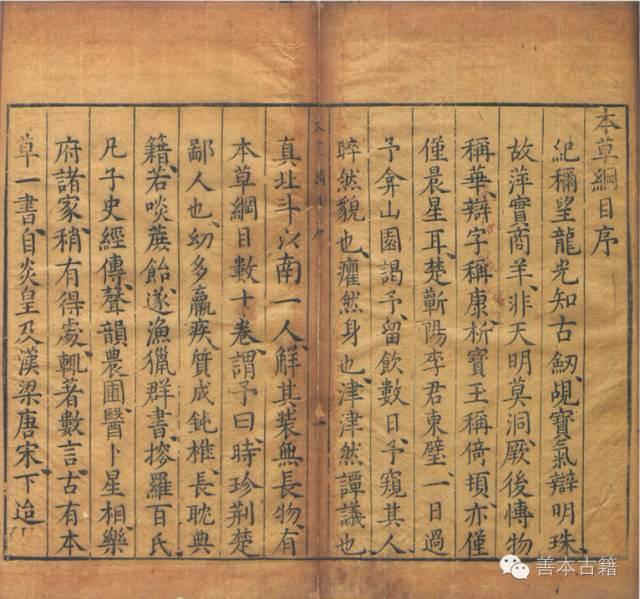 本草綱目序
紀稱望龍光知古劒覘寶氣辯明珠
故萍實商羊非天明莫洞厥後博物
稱華辯字稱康析寶玉稱倚頓亦僅
僅晨星耳楚蘄陽李君東璧一日過
予弇山園謁予留飲數日予窺其人
睟然貌也癯然身也津津然譚議也
真北斗以南一人解其裝無長物有
本草綱目數十卷謂予曰時珍荆楚
鄙人也幼多羸疾質成鈍椎長耽典
籍若啖蔗飴遂漁獵群書搜羅百氏
凡子史經傳聲韻農圃醫卜星相樂
府諸家稍有得處輒著數言古有本
草一書自炎皇及漢梁唐宋下迨
善本古籍